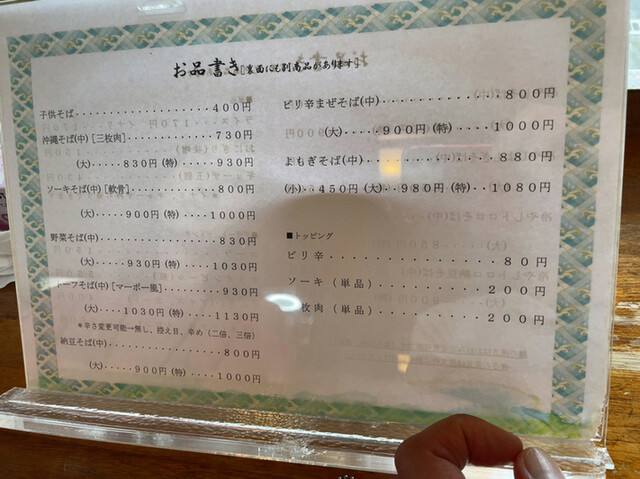 お品書き[裏面にも別商品があります]
子供そば・・・・・・・・・・・・・・・・・・・400円
沖縄そば(中)[三枚肉]・・・・・・・・・730円
(大)・・・830円(特)・・・930円
ソーキそば(中)[軟骨]・・・・・・・・・800円
(大)・・・・900円(特)・・・・1000円
野菜そば(中)・・・・・・・・・・・・・・830円
(大)・・・930円(特)・・・・1030円
ーフそば(中)[マーボー風]・・・・・・・930円
(大)・・・・1030円(特)・・・・1130円
*辛さ変更可能→無し、控え目、辛め(二倍、三倍)
納豆そば(中)・・・・・・・・・・・・・・800円
(大)・・・・900円(特)・・・・1000円
ピリ辛まぜそば(中)・・・・・・・・・・・800円
(大)・・・・900円(特)・・・・1000円
よもぎそば(中)・・・・・・・・・・・・・880円
(小)・・450円(大)・・980円(特)・・1080円
■トッピング
ピリ辛・・・・・・・・・・・・・・・・・80円
ソーキ(単品)・・・・・・・・・・・・200円
枚肉(単品)・・・・・・・・・・・・200円